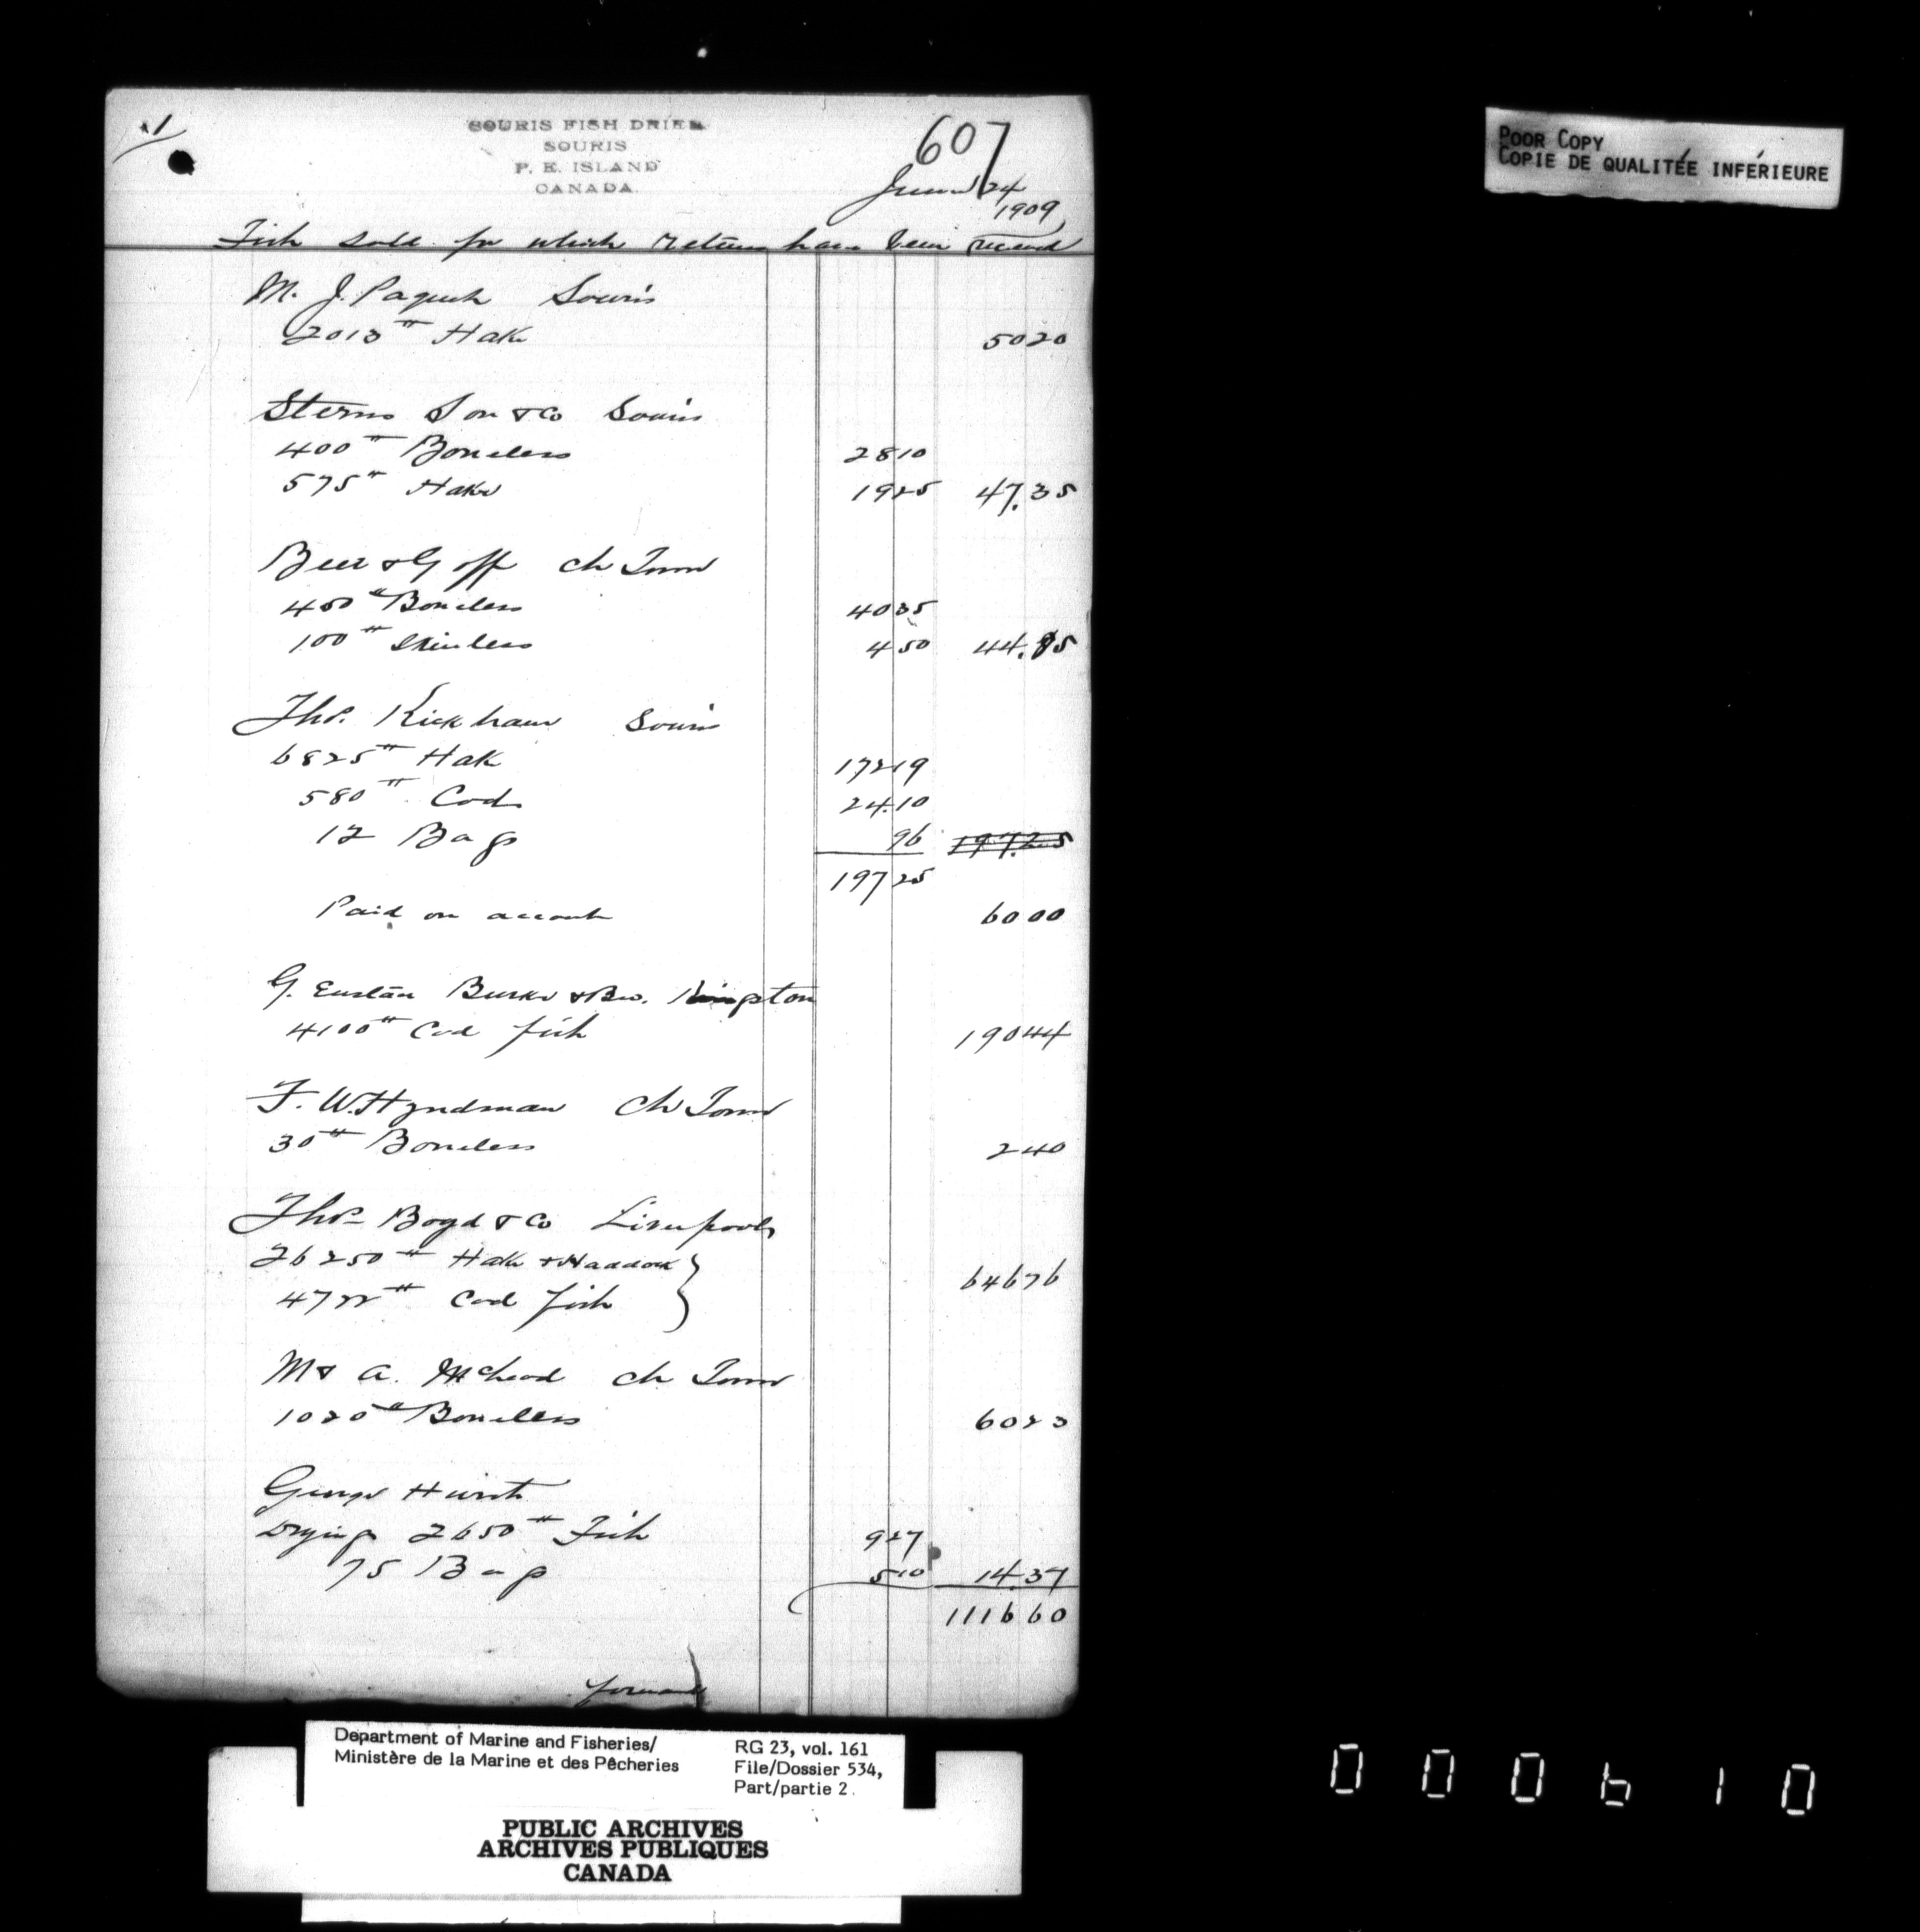 1/
607
SOURIS FISH DRIER
SOURIS
P. E. ISLAND
CANADA
June 24
1909
Fish sold for which returns have been received
M. J. Paquet Souris
2013# Hake 50 20
Sterns Son & Co Souris
400# Boneless 28 10
575# Hake 19 25 47.35
Beer & Goff Ch Town
450# Boneless 40 35
100# Skinless 4 50 44.85
Thos. Kickham Souris
6825# Hake 172 19
580# Cod 24.10
12 Bags 96 197.25
197 25
Paid on account 60 00
G. Eustace Burke & Bro. Kingston
4100# Cod fish 190 44
F. W. Hyndman Ch Town
30# Boneless 2 40
Thos Boyd & Co Liverpool
26250# Hake & Haddock
646 76
4722# Cod fish
M & A. McLeod Ch Town
1020# Boneless 60 23
George Hirst
Drying 2650# Fish 9 27
75 Bags 5 10 14.37
1116 60
forward
POOR COPY
COPIE DE QUALITÉE INFÉRIEURE
Department of Marine and Fisheries/
Ministère de la Marine et des Pêcheries
RG 23, vol. 161
File/Dossier 534,
Part/partie 2.
PUBLIC ARCHIVES
ARCHIVES PUBLIQUES
CANADA
000610